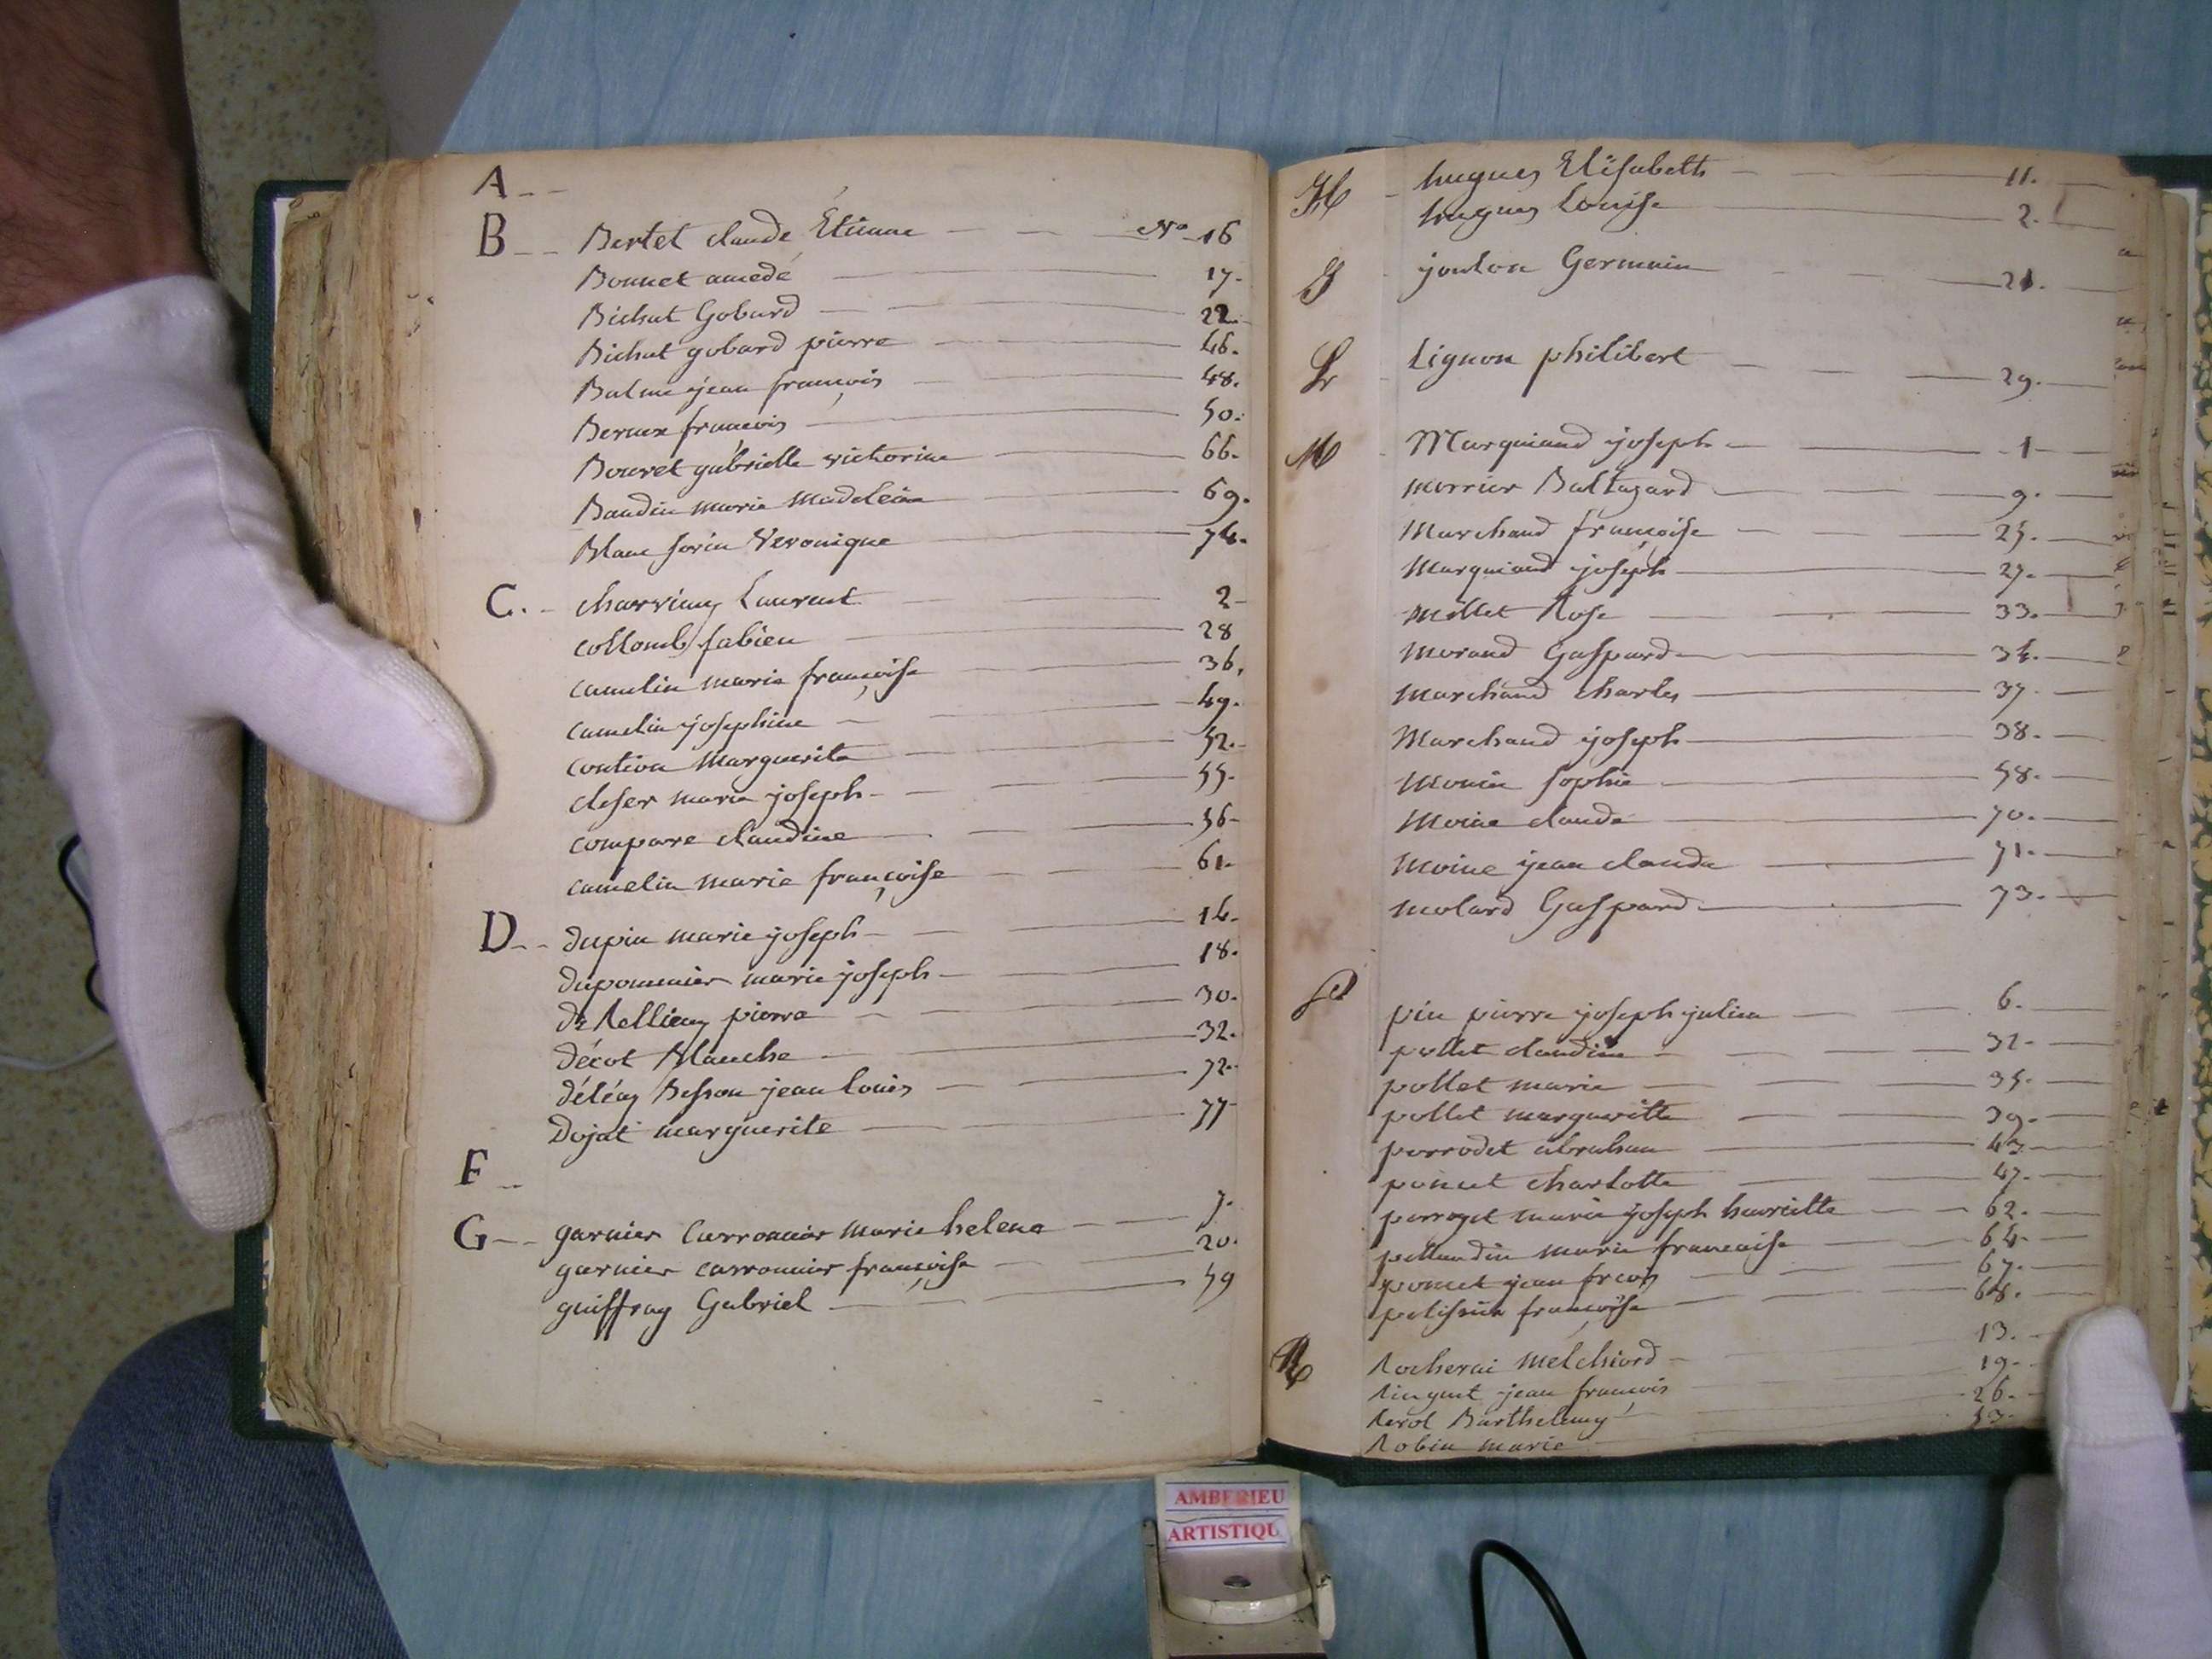 A
B Bertet claude Étienne N° 16
Bonnet amedé 17.
Bichat Gobard 22.
Bichat gobard pierre 46.
Balme jean françois 48.
Bernex françois 50.
Bouvet gabrielle victorine 66.
Baudin marie madeleine 69.
Blanc Veronique 74.
C. charvieux Laurent 2
collomb fabien 28
camelin marie françoise 36.
camelin josephine 49.
contion Marguerite 52.
marie joseph 55.
compare claudine 56
camelin marie françoise 61.
D dupin marie joseph 14.
duponnier marie joseph 18.
pierre 30.
décot Blanche 32.
Besson jean Louis 72.
Dojat marguerite 77
F
G garnier Carronnier marie helene 7.
garnier carronnier françoise 20.
guiffray Gabriel 59
H hugues Elisabeth 11.
hugues Louise 2.
J jonton Germain 21.
L Lignon philibert 29.
M Marquiand joseph 1
merrier Baltazard 9.
Marchand françoise 25.
Marquiand joseph 27.
mollet Rose 33.
morand Gaspard 34.
marchand charles 37.
Marchand joseph 38.
Monin sophie 58.
Moine claude 70.
Moine jean claude 71.
molard Gaspard 73.
P pin pierre joseph julien 6.
pollet claudine 32.
pollet marie 35.
pollet margueritte 39.
perrodet abraham 43
poncet charlotte 47.
perroget marie joseph henriette 62.
marie francaise 64.
poncet jean frcois 67.
françoise 68.
R Rocherai Melchiord 13.
Ringuet jean françois 19.
Revol Barthelemy 26.
Robin marie 53.
AMBERIEU
ARTISTIQU